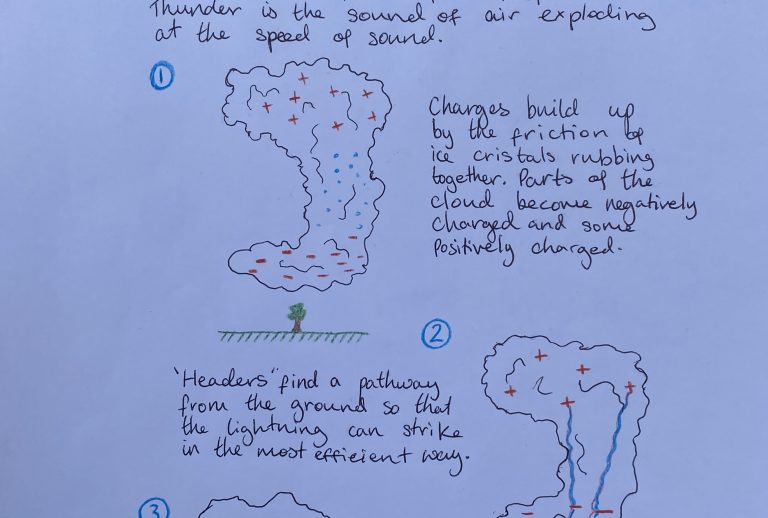 Thunder is the sound of air exploding
at the speed of sound.
1
Charges build up
by the friction of
ice cristals rubbing
together. Parts of the
cloud become negatively
charged and some
positively charged.
2
"Headers" find a pathway
from the ground so that
the lightning can strike
in the most efficient way.
3